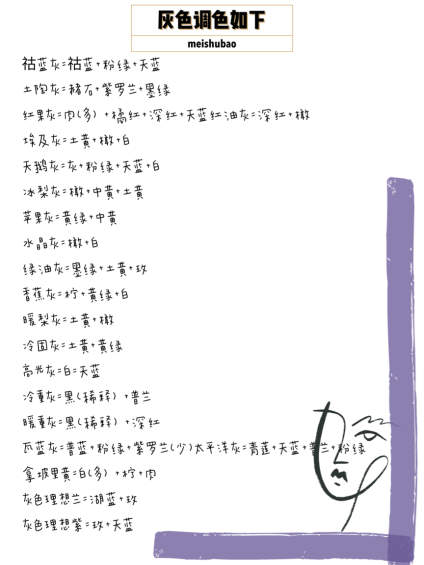 灰色调色如下
meishubao
祜蓝灰=祜蓝+粉绿+天蓝
土陶灰=赭石+紫罗兰+墨绿
红果灰=肉(多) +橘红+深红+天蓝红油灰=深红+橄
埃及灰=土黄+橄+白
天鹅灰=灰+粉绿+天蓝+白
冰梨灰=橄+中黄+土黄
苹果灰=黄绿+中黄
水晶灰=橄+白
绿油灰=墨绿+土黄+玫
香蕉灰=柠+黄绿+白
暖梨灰=土黄+橄
冷固灰=土黄+黄绿
高光灰=白=天蓝
冷重灰=黑(稀释) +普兰
暖重灰=黑(稀释) +深红
瓦蓝灰=普蓝+粉绿+紫罗兰(少)太平洋灰=青莲+天蓝+普兰+粉绿
拿坡里黄=白(多) +柠+肉
灰色理想兰=湖蓝+玫
灰色理想紫=玫+天蓝